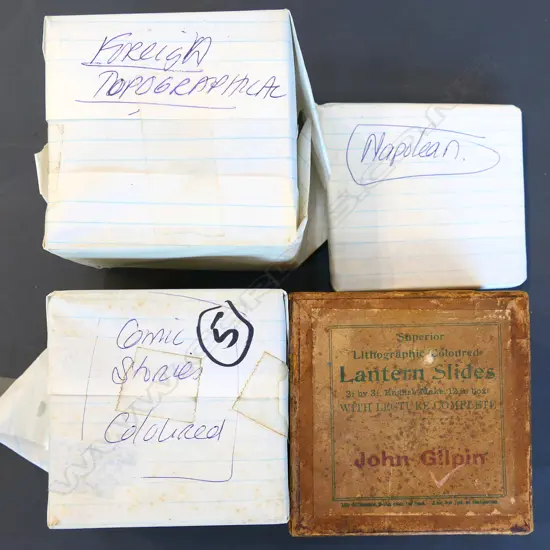 Foreign
TOPOGRAPHICAL
Napolean.
Comic
Stories
5
Coloured
Superior
Lithographic Coloured
Lantern Slides
3¼ by 3¼ English Make. 12 in box
WITH LECTURE COMPLETE
John Gilpin